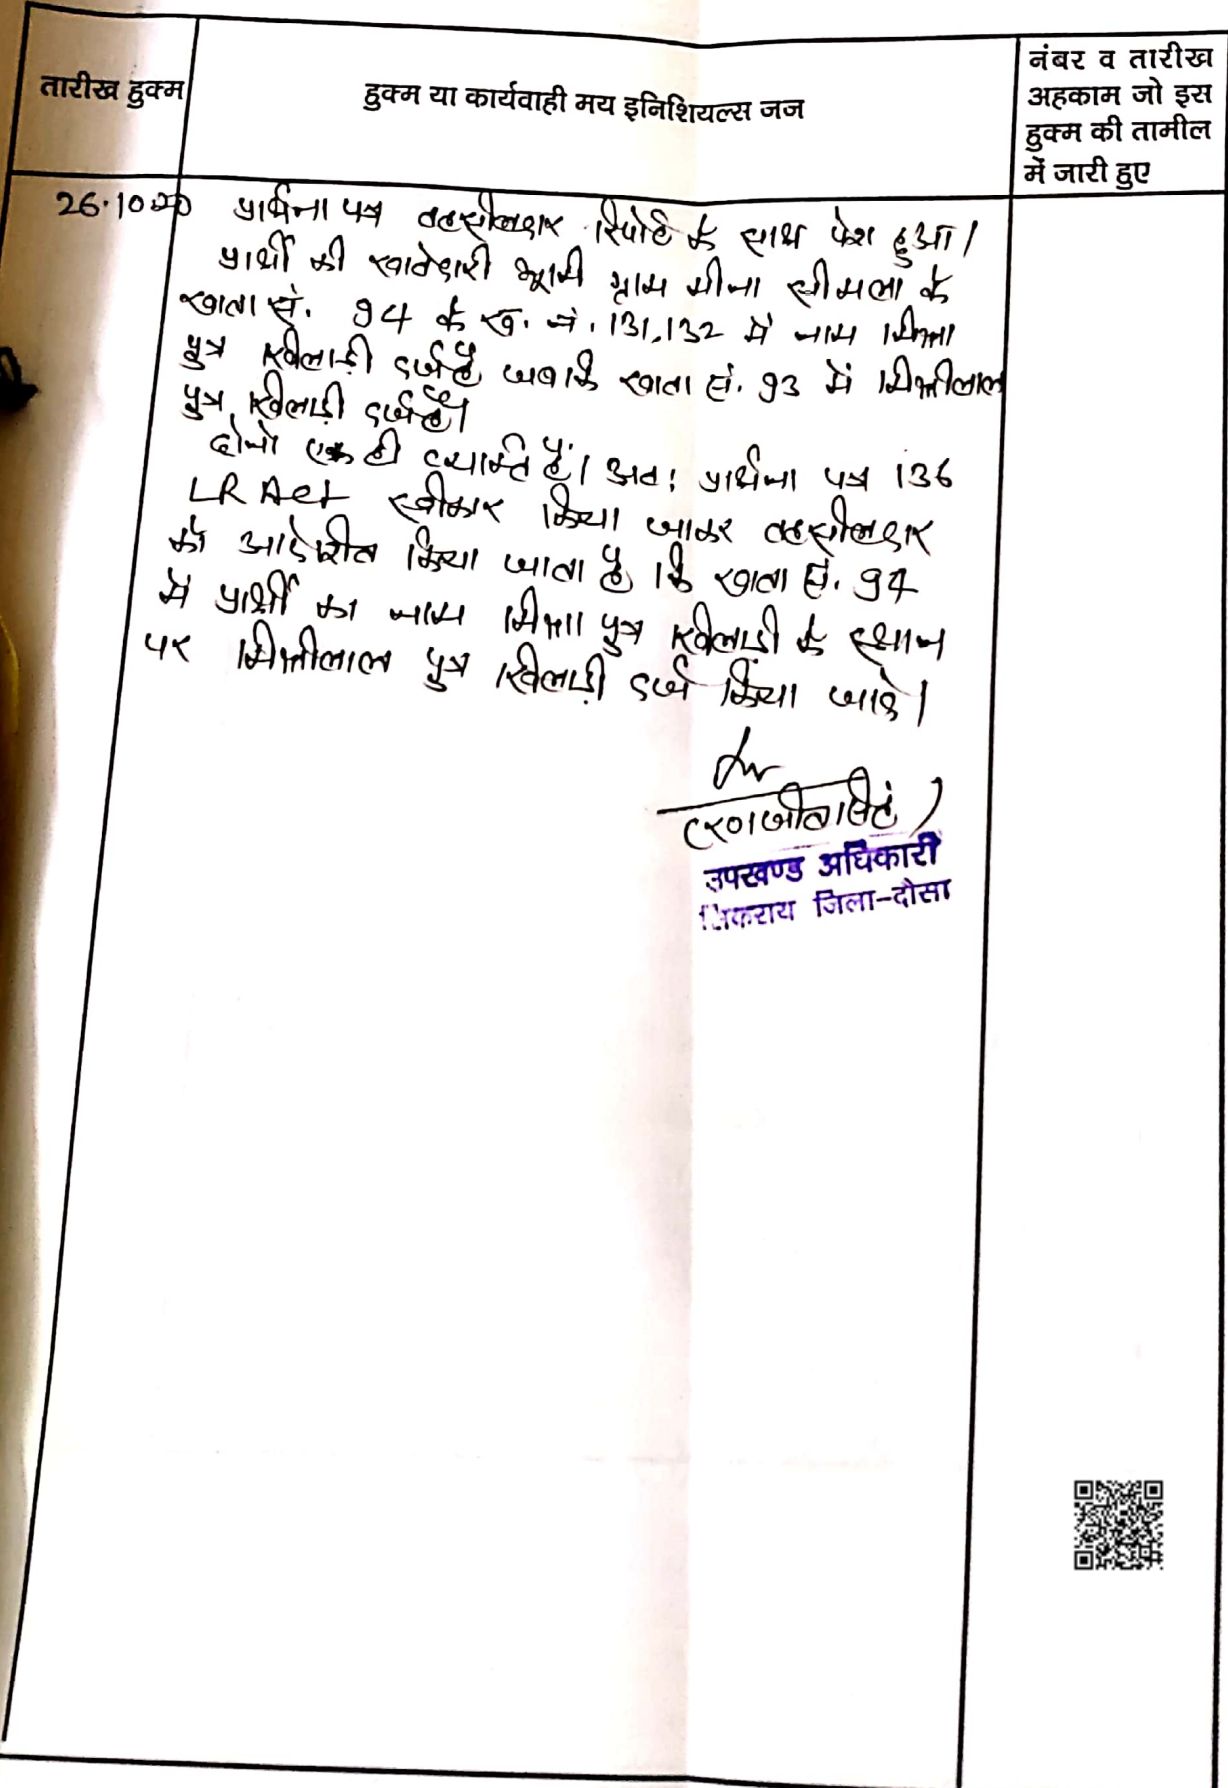 तारीख हुक्म
हुक्म या कार्यवाही मय इनिशियल्स जज
नंबर व तारीख
अहकाम जो इस
हुक्म की तामील
में जारी हुए
26.10.20 प्रार्थना पत्र तहसीलदार रिपोर्ट के साथ पेश हुआ।
प्रार्थी की खातेदारी भूमी ग्राम मीना सीमला के
खाता सं. 94 के ख. नं. 131,132 में नाम मिन्ता
पुत्र खिलाडी दर्ज है जबकि खाता सं. 93 में मिन्तीलाल
पुत्र खिलाडी दर्ज है।
दोनो एक ही व्यक्ति है। अतः प्रार्थना पत्र 136
LR Act स्वीकार किया जाकर तहसीलदार
को आदेशीत किया जाता है कि खाता सं. 94
में प्रार्थी का नाम मिन्ता पुत्र खिलाडी के स्थान
पर मिन्तीलाल पुत्र खिलाडी दर्ज किया जावे।
(रणजीत सिंह)
उपखण्ड अधिकारी
सिकराय जिला-दौसा